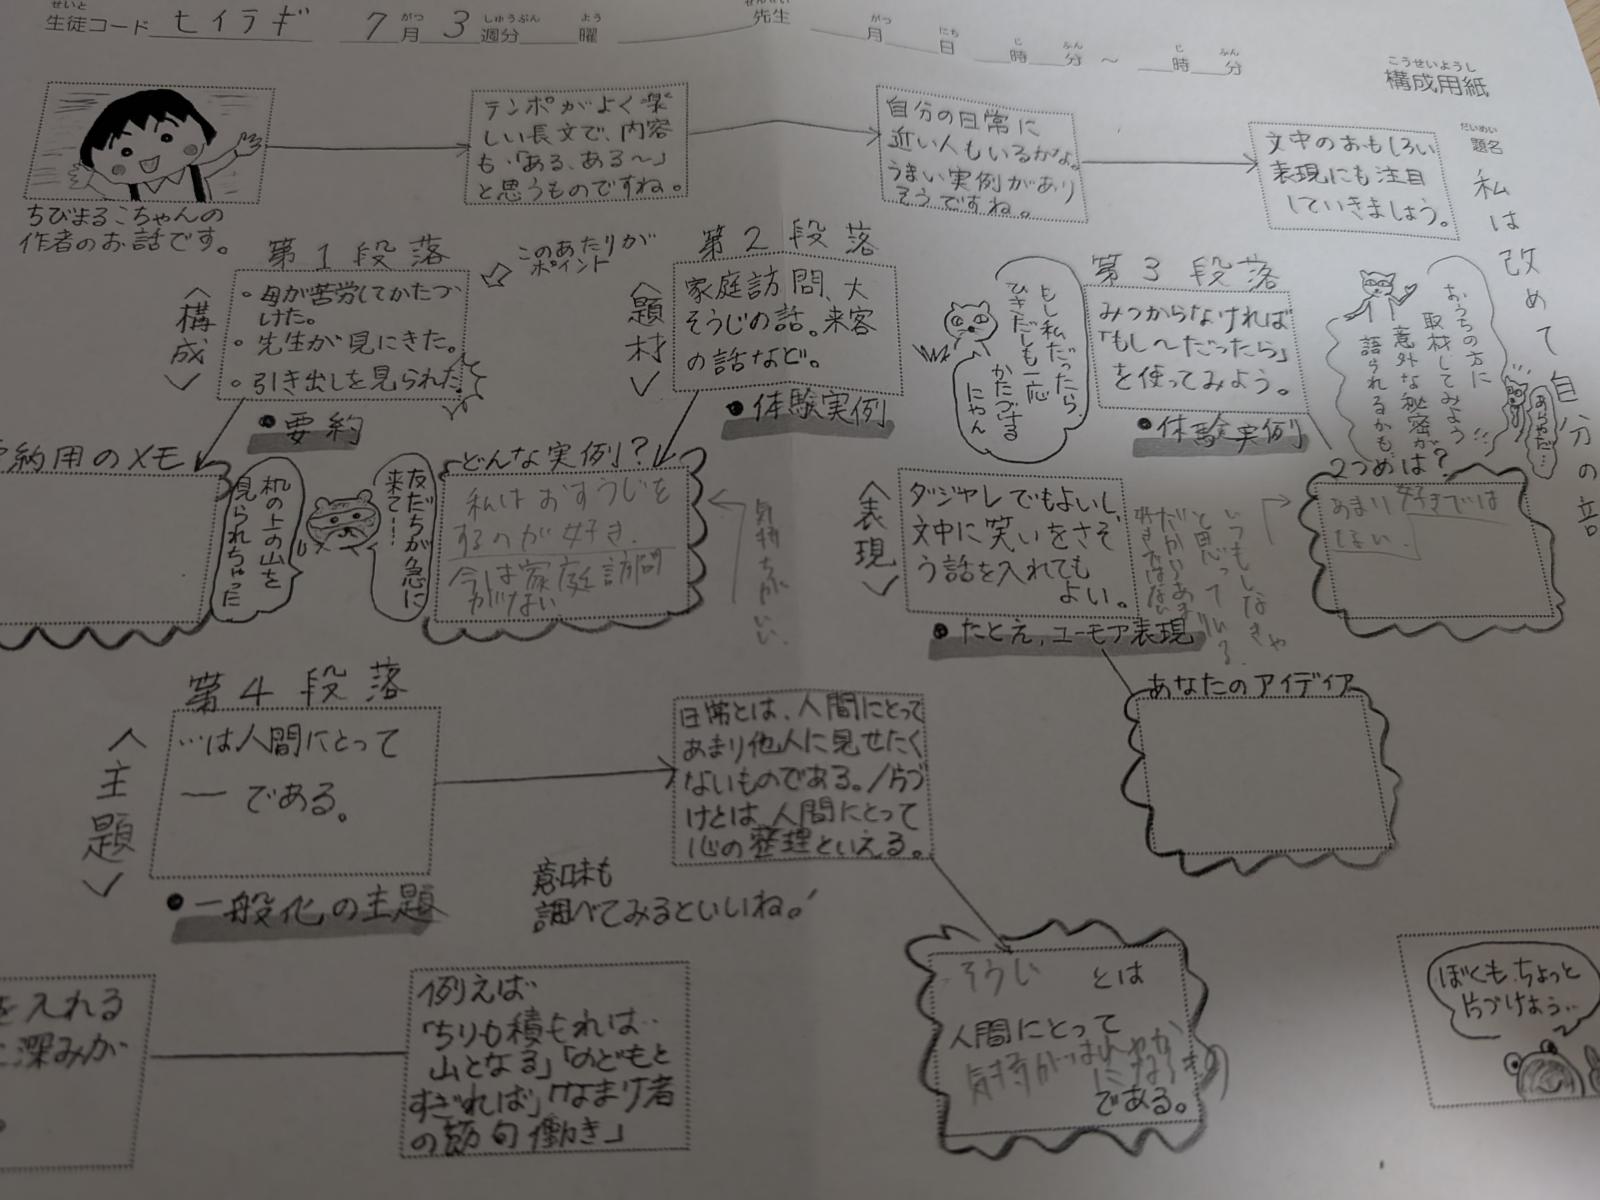 せいと がつ しゅうぶん よう せんせい がつ にち じ ふん じ ふん
生徒コード ヒイラギ 7月 3週分 曜 先生 月 日 時 分 ~ 時 分
こうせいようし
構成用紙
だいめい
題名
私は改めて自分の
ちびまるこちゃんの
作者のお話です。
テンポがよく楽
しい長文で、内容
も、「ある、ある〜」
と思うものですね。
自分の日常に
近い人もいるかな。
うまい実例があり
そうですね。
文中のおもしろい
表現にも注目
していきましょう。
第1段落
〈構成〉
・母が苦労してかたづ
けた。
・先生が見にきた。
・引き出しを見られた
このあたりが
ポイント
●要約
約用のメモ
机の上の山を
見られちゃった
友だちが急に
来て…
第2段落
〈題材〉
家庭訪問、大
そうじの話。来客
の話など。
●体験実例
どんな実例?
私はおすうじを
するのが好き.
今は家庭訪問
がない
気持ちがいい.
第3段落
もし私だったら、
ひきだしも一応
かたづける
にゃん
みつからなければ
「もし〜だったら」
を使ってみよう。
●体験実例
おうちの方に
取材してみよう
意外な秘密が
語られるかも
2つめは?
あまり好きでは
ない.
いつもしなきゃ
と思っている.
だからあまり
好きではない
〈表現〉
ダジャレでもよいし、
文中に笑いをさそ
う話を入れても
よい。
●たとえ,ユーモア表現
あなたのアイディア
第4段落
〈主題〉
…は人間にとって
― である。
●一般化の主題
日常とは、人間にとって
あまり他人に見せたく
ないものである。/片づ
けとは、人間にとって
心の整理といえる。
意味も
調べてみるといいね。
そうじ とは
人間にとって
気持がはれやか
になるき
である。
を入れる
深みが
例えば
「ちりも積もれば‥
山となる」「のどもと
すぎれば」「なまけ者
の節句働き」
ぼくもちょっと
片づけよう…